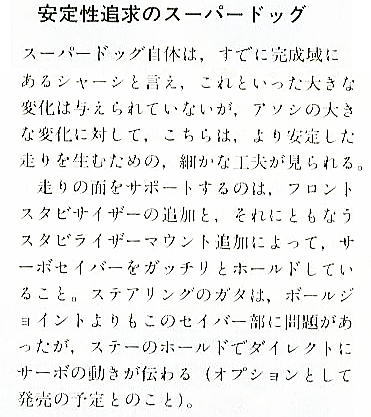 安定性追求のスーパードッグ
スーパードッグ自体は，すでに完成域に
あるシャーシと言え，これといった大きな
変化は与えられていないが，アソシの大き
な変化に対して，こちらは，より安定した
走りを生むための，細かな工夫が見られる。
走りの面をサポートするのは，フロント
スタビサイザーの追加と，それにともなう
スタビライザーマウント追加によって，サ
ーボセイバーをガッチリとホールドしてい
ること。ステアリングのガタは，ボールジ
ョイントよりもこのセイバー部に問題があ
ったが，ステーのホールドでダイレクトに
サーボの動きが伝わる（オプションとして
発売の予定とのこと）。